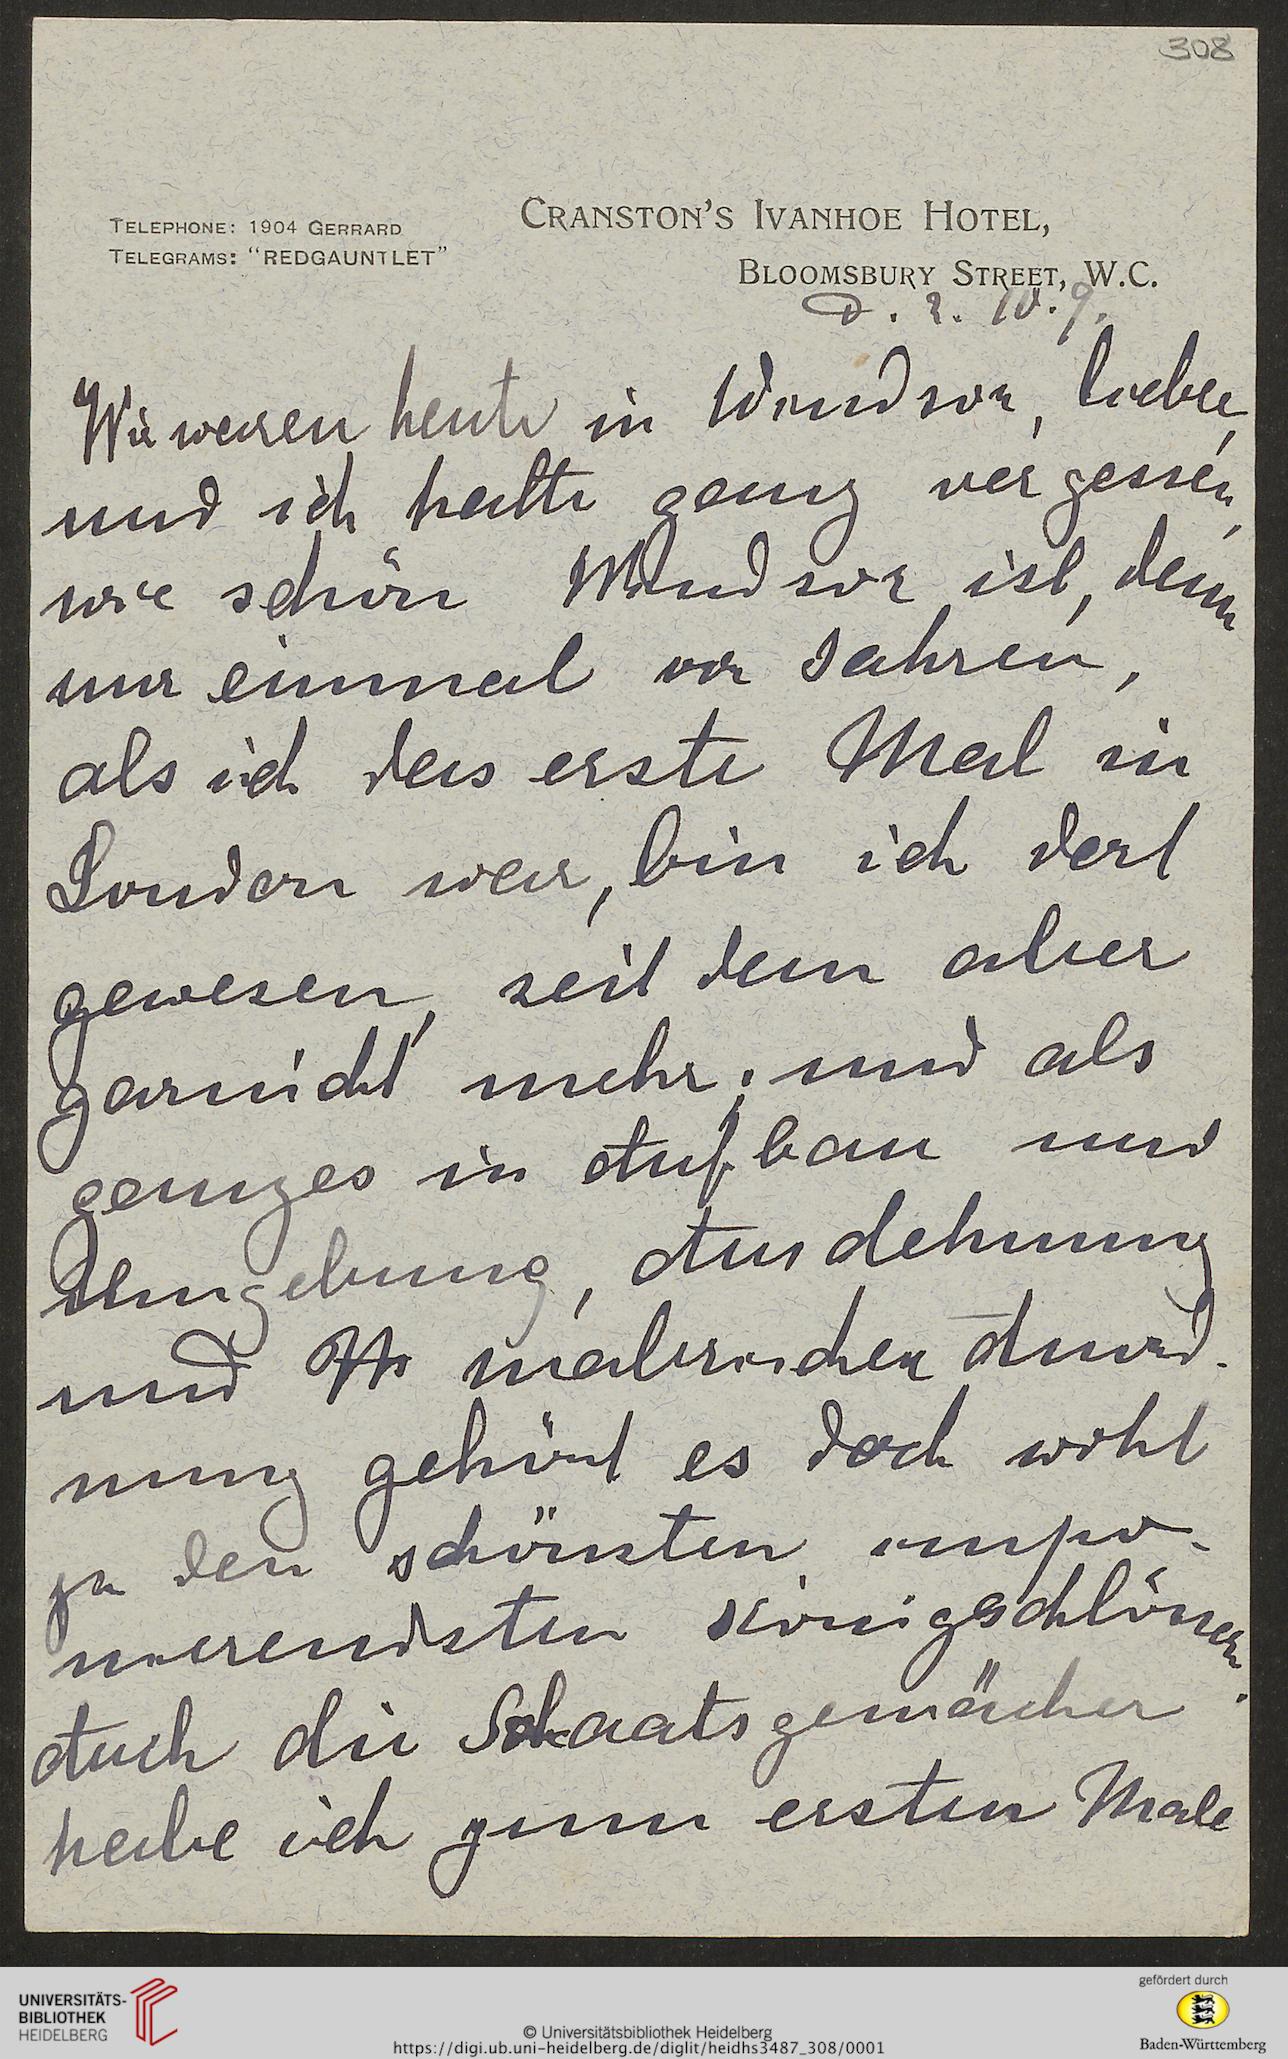 308
TELEPHONE: 1904 GERRARD
TELEGRAMS: "REDGAUNTLET"
CRANSTON'S IVANHOE HOTEL,
BLOOMSBURY STREET, W.C.
d. 2. 10. 9.
Wir waren heute in Windsor, lieber,
und ich hatte ganz vergessen,
wie schön Windsor ist, denn
nur einmal vor Jahren,
als ich das erste Mal in
London war, bin ich dort
gewesen, seit dem aber
garnicht mehr; und als
ganzes in Aufbau und
Umgebung, Ausdehnung
und malerischer Anord-
nung gehört es doch wohl
zu den schönsten impo-
nierendsten Königsschlössern.
Auch die Staatsgemächer
habe ich zum ersten Male
UNIVERSITÄTS-
BIBLIOTHEK
HEIDELBERG
© Universitätsbibliothek Heidelberg
https://digi.ub.uni-heidelberg.de/diglit/heidhs3487_308/0001
gefördert durch
Baden-Württemberg